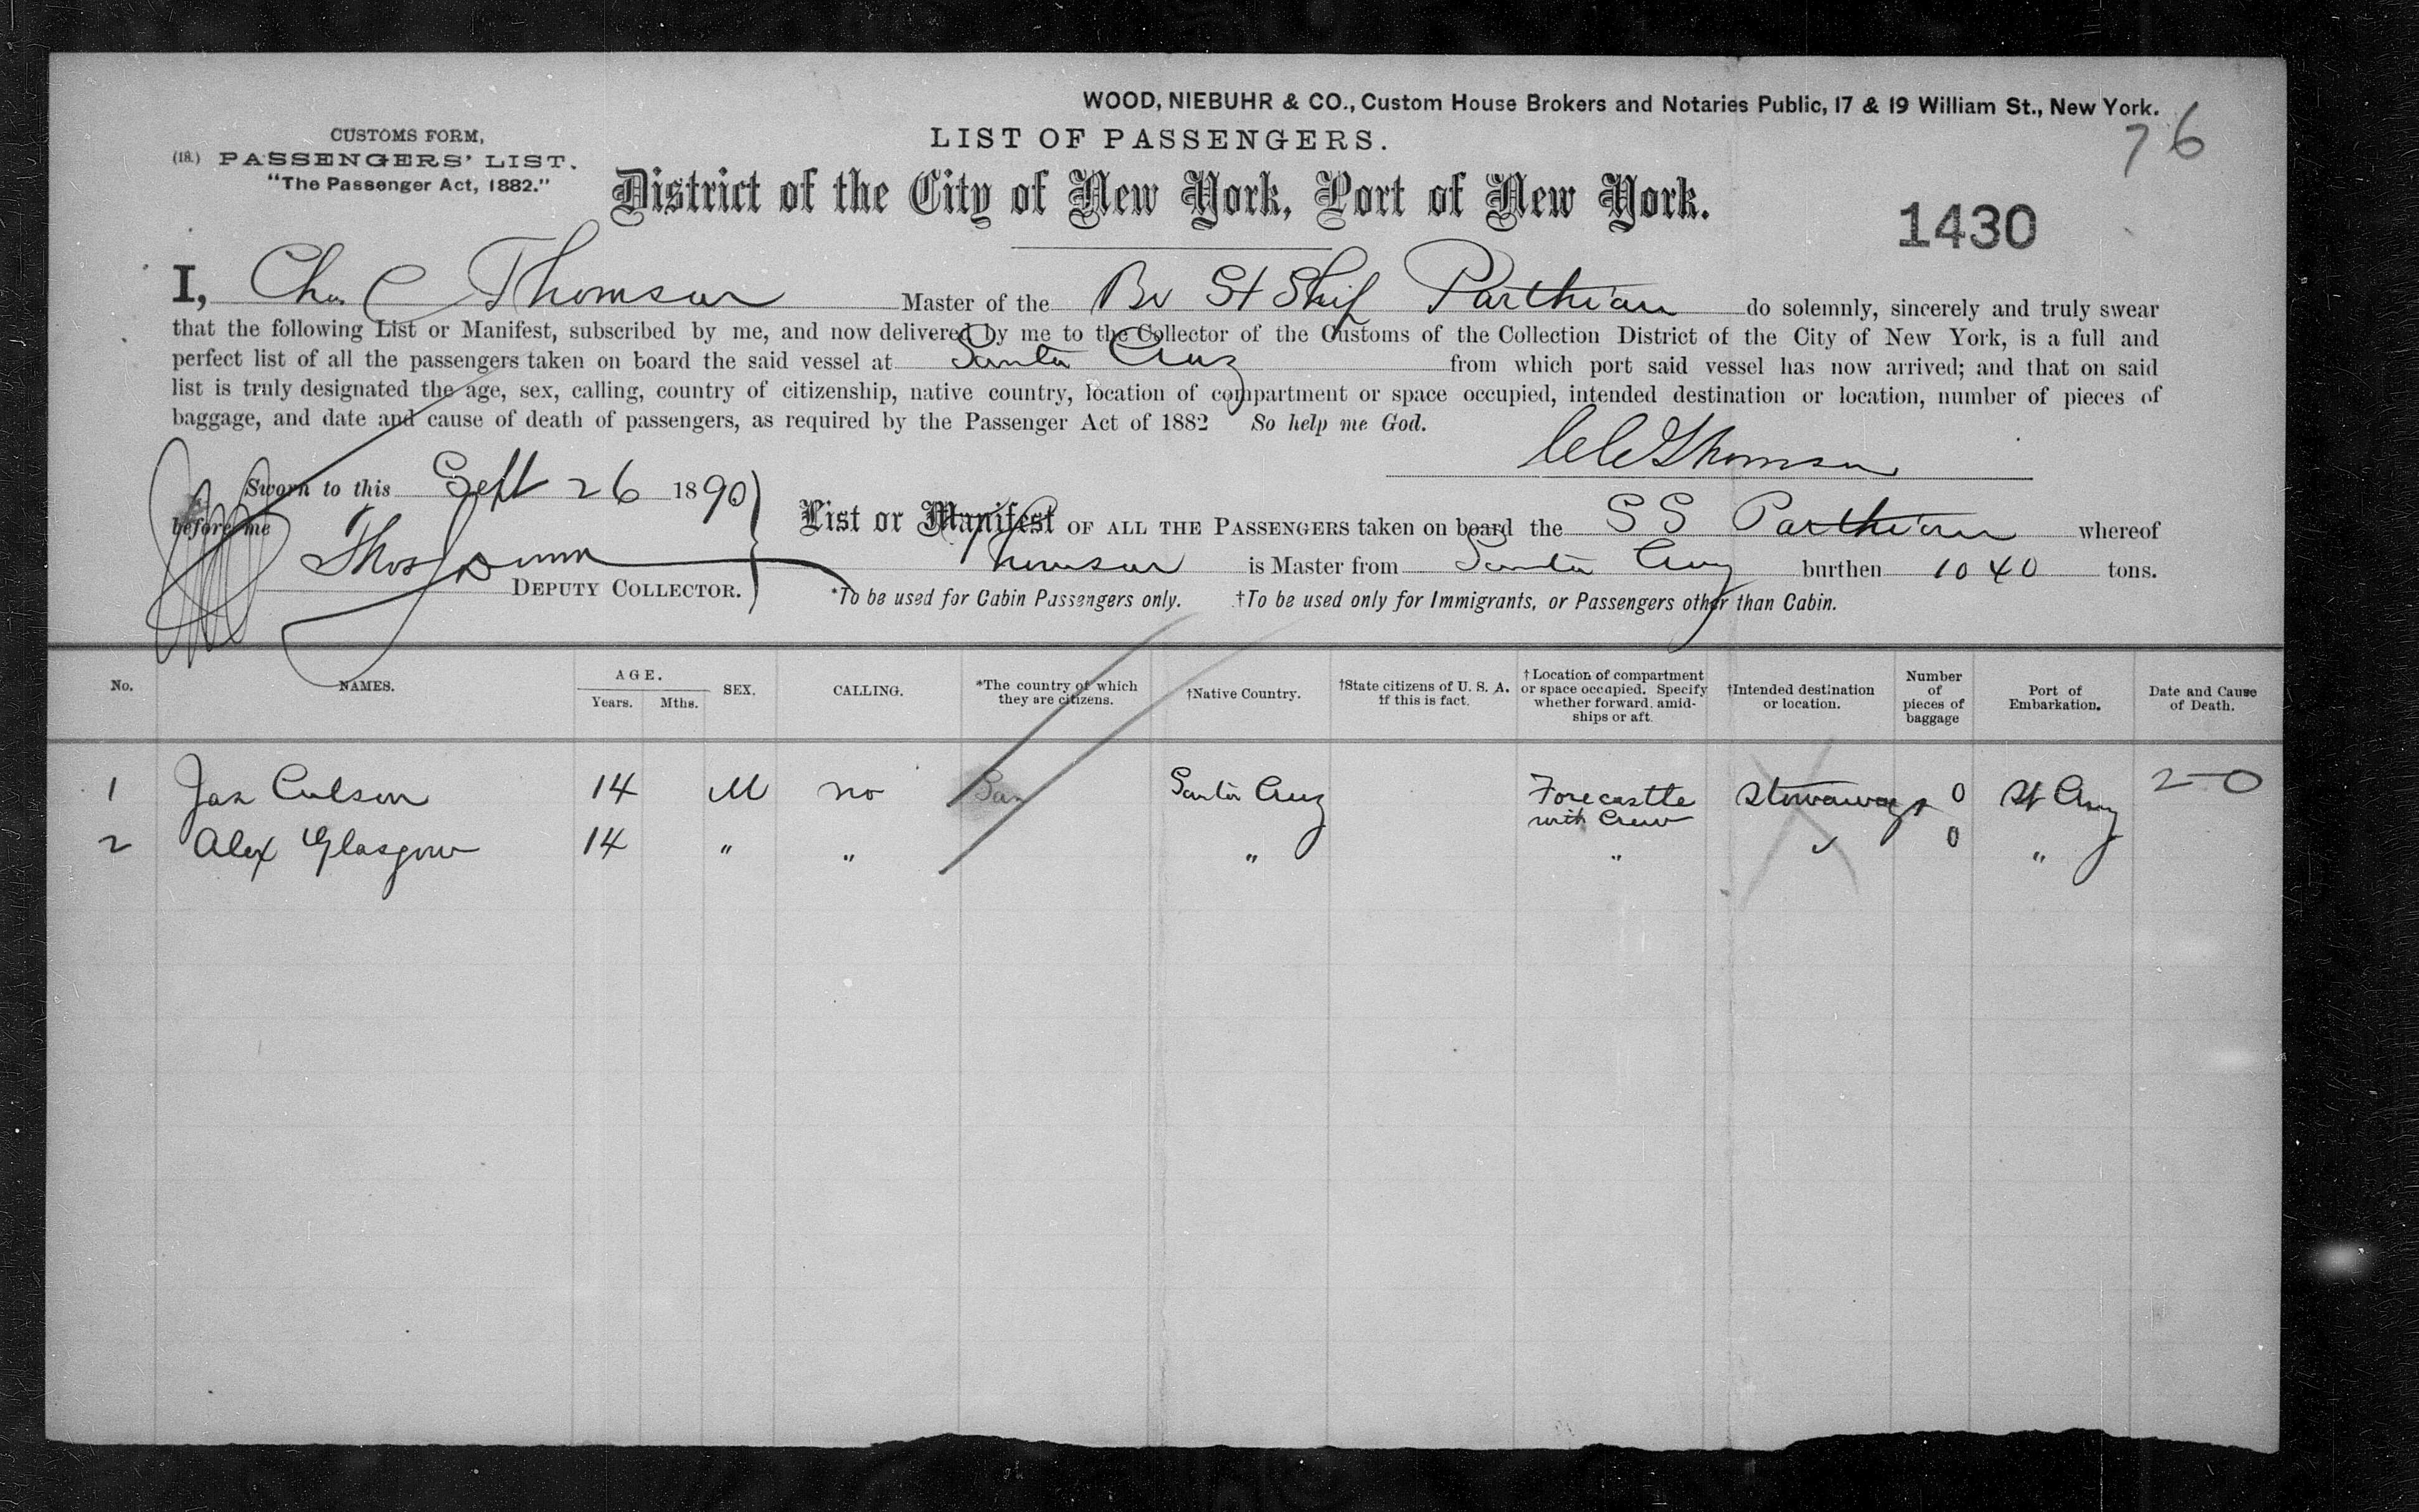 WOOD, NIEBUHR & CO., Custom House Brokers and Notaries Public, 17 & 19 William St., New York.
76
CUSTOMS FORM,
(18.) PASSENGERS' LIST.
"The Passenger Act, 1882."
LIST OF PASSENGERS.
District of the City of New York, Port of New York.
1430
I, Chas C Thomson Master of the Br St Ship Parthian do solemnly, sincerely and truly swear
that the following List or Manifest, subscribed by me, and now delivered by me to the Collector of the Customs of the Collection District of the City of New York, is a full and
perfect list of all the passengers taken on board the said vessel at Santa Cruz from which port said vessel has now arrived; and that on said
list is truly designated the age, sex, calling, country of citizenship, native country, location of compartment or space occupied, intended destination or location, number of pieces of
baggage, and date and cause of death of passengers, as required by the Passenger Act of 1882 So help me God.
C C Thomson
Sworn to this Sept 26 1890
before me
Thos Dunn
DEPUTY COLLECTOR.
List or Manifest OF ALL THE PASSENGERS taken on board the S S Parthian whereof
Thomson is Master from Santa Cruz burthen 1040 tons.
*To be used for Cabin Passengers only. †To be used only for Immigrants, or Passengers other than Cabin.
No. NAMES. AGE. Years. Mths. SEX. CALLING. *The country of which they are citizens. †Native Country. †State citizens of U. S. A. if this is fact. †Location of compartment or space occupied. Specify whether forward, amidships or aft. †Intended destination or location. Number of pieces of baggage Port of Embarkation. Date and Cause of Death.
1 Jas Culson 14 M no Santa Cruz Forecastle with Crew Stowaways 0 St Cruz 2-0
2 Alex Glasgow 14 " " " " " 0 "